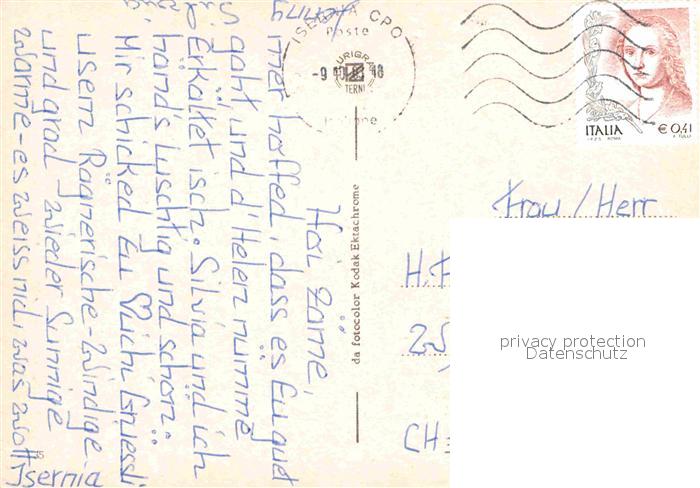 Hoi zäme,
mer hoffed, dass es Eu guet
gaht, und d'Helen nümme
Erkältet isch. Silvia und ich
händs luschtig und schön.
Mir schicked Eu Vüchi Grüessli
usem Rägnerische-Windige
und grad wieder Sunnige
Warme-es weiss nid, was wott
Isernia
ISERNIA CPO
Poste
TERNI
ITALIA
€ 0,41
da fotocolor Kodak Ektachrome
Frau/Herr
H.
CH-
privacy protection
Datenschutz